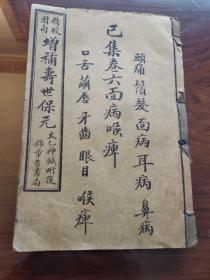 頭痛 鬚髮 面病 耳病 鼻病
己集卷六面病喉痺
口舌 繭唇 牙齒 眼目 喉痺
精校
圈句
增補壽世保元
太乙神鍼附後
錦章書局